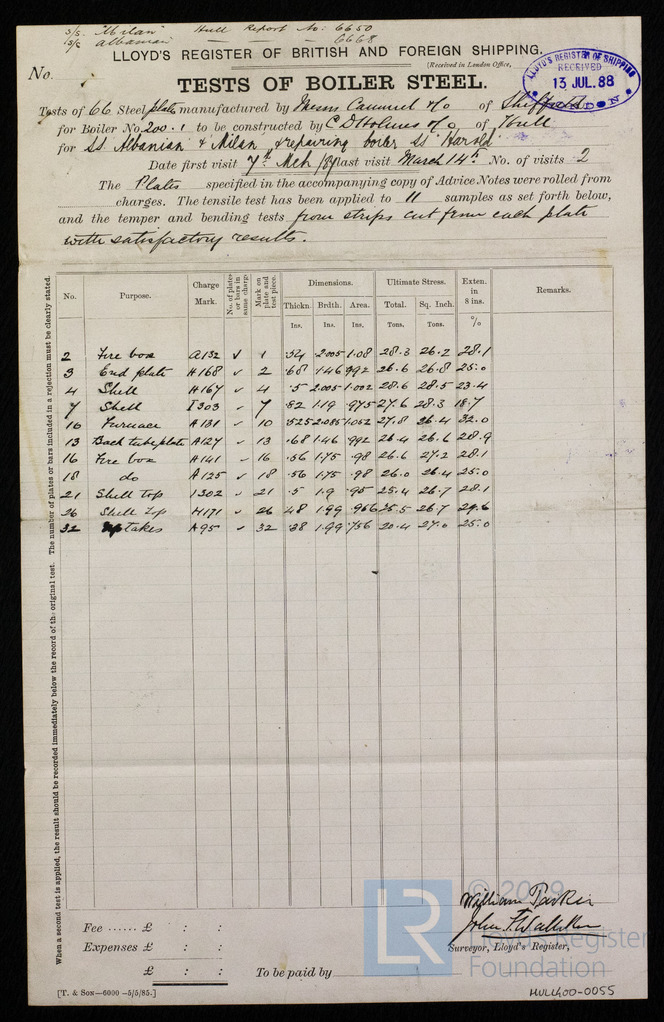 S/S. Milan Hull Report No: 6650
S/S Albanian — " — 6668
LLOYD'S REGISTER OF BRITISH AND FOREIGN SHIPPING.
(Received in London Office,
No.
LLOYD'S REGISTER OF SHIPPING
RECEIVED
13 JUL. 88
LONDON
TESTS OF BOILER STEEL.
Tests of 66 Steel plates manufactured by Messrs Cammel & Co of Sheffield
for Boiler No. 200.1 to be constructed by C D Holmes & Co of Hull
for SS Albanian & Milan & repairing boiler SS 'Harold'
Date first visit 7th Mch /88 last visit March 14th No. of visits 2
The Plates specified in the accompanying copy of Advice Notes were rolled from
charges. The tensile test has been applied to 11 samples as set forth below,
and the temper and bending tests from strips cut from each plate
with satisfactory results.
When a second test is applied, the result should be recorded immediately below the record of the original test. The number of plates or bars included in a rejection must be clearly stated.
No. Purpose. Charge Mark. No. of plates or bars in same charge Mark on plate and test piece. Dimensions. Ultimate Stress. Exten. in 8 ins. Remarks.
Thickn. Brdth. Area. Total. Sq. Inch.
Ins. Ins. Ins. Tons. Tons. %
2 Fire box A132 ✓ 1 .54 2.005 1.08 28.3 26.2 28.1
3 End plate H168 ✓ 2 .68 1.46 .992 26.6 26.8 25.0
4 Shell H167 ✓ 4 .5 2.005 1.002 28.6 28.5 23.4
7 Shell I303 ✓ 7 .82 1.19 .975 27.6 28.3 18.7
10 Furnace A131 ✓ 10 .525 2.085 1.052 27.8 26.4 32.0
13 Back tube plate A127 ✓ 13 .68 1.46 .992 26.4 26.6 28.9
16 Fire box H141 ✓ 16 .56 1.75 .98 26.6 27.2 28.1
18 do A125 ✓ 18 .56 1.75 .98 26.0 26.4 25.0
21 Shell top I302 ✓ 21 .5 1.9 .95 25.4 26.7 28.1
26 Shell top H171 ✓ 26 .48 1.99 .956 25.5 26.7 29.6
32 Uptakes A95 ✓ 32 .38 1.99 .756 20.4 27.0 25.0
William Parker
John F Walliker
Surveyor, Lloyd's Register,
Fee ...... £ : :
Expenses £ : :
£ : :
To be paid by
[T. & SON—6000—5/5/85.]
LR
© 2019
Lloyd's Register
Foundation
HUL400-0055